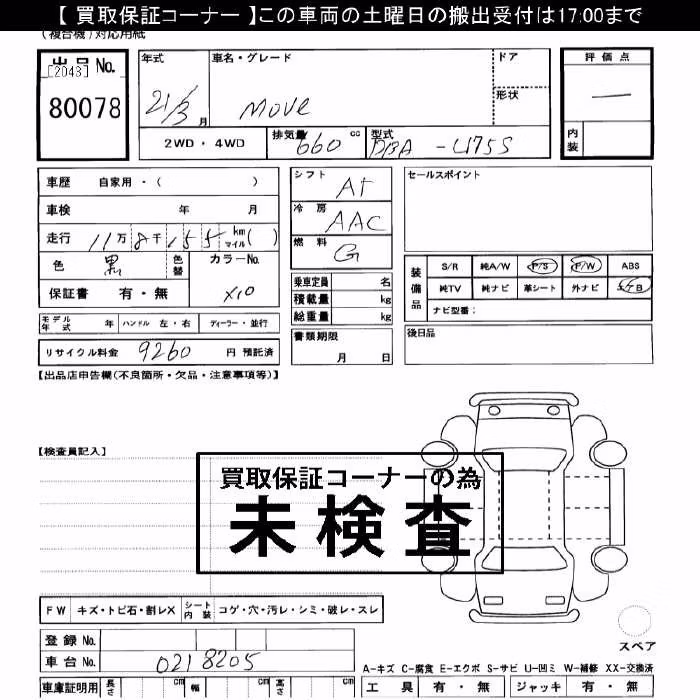 【 買取保証コーナー 】この車両の土曜日の搬出受付は17:00まで
(複合機) 対応用紙
出品 No.
[2043]
80078
年式
21/3 月
車名・グレード
MOVE
ドア
形状
評価点
―
内装
2WD ・ 4WD
排気量 660 cc
型式 DBA -L175S
車歴 自家用 ・ ( )
車検 年 月
走行 11万 8千 155 km マイル ( )
色 黒
色替
カラーNo. X10
保証書 有 ・ 無
シフト AT
冷房 AAC
燃料 G
セールスポイント
乗車定員 名
積載量 kg
総重量 kg
装備品
S/R 純A/W P/S P/W ABS
純TV 純ナビ 革シート 外ナビ
ナビ型番:
モデル年式 年 ハンドル 左・右 ディーラー・並行
書類期限
月 日
後日品
リサイクル料金 9260 円 預託済
【出品店申告欄(不良箇所・欠品・注意事項等)】
【検査員記入】
買取保証コーナーの為
未検査
FW キズ・トビ石・割レX シート内装 コゲ・穴・汚レ・シミ・破レ・スレ
スペア
登録 No.
車台 No. 0218205
A-キズ C-腐食 E-エクボ S-サビ U-凹ミ W-補修 XX-交換済
車庫証明用 長さ cm 幅 cm 高さ cm
工具 有 ・ 無 ジャッキ 有 ・ 無